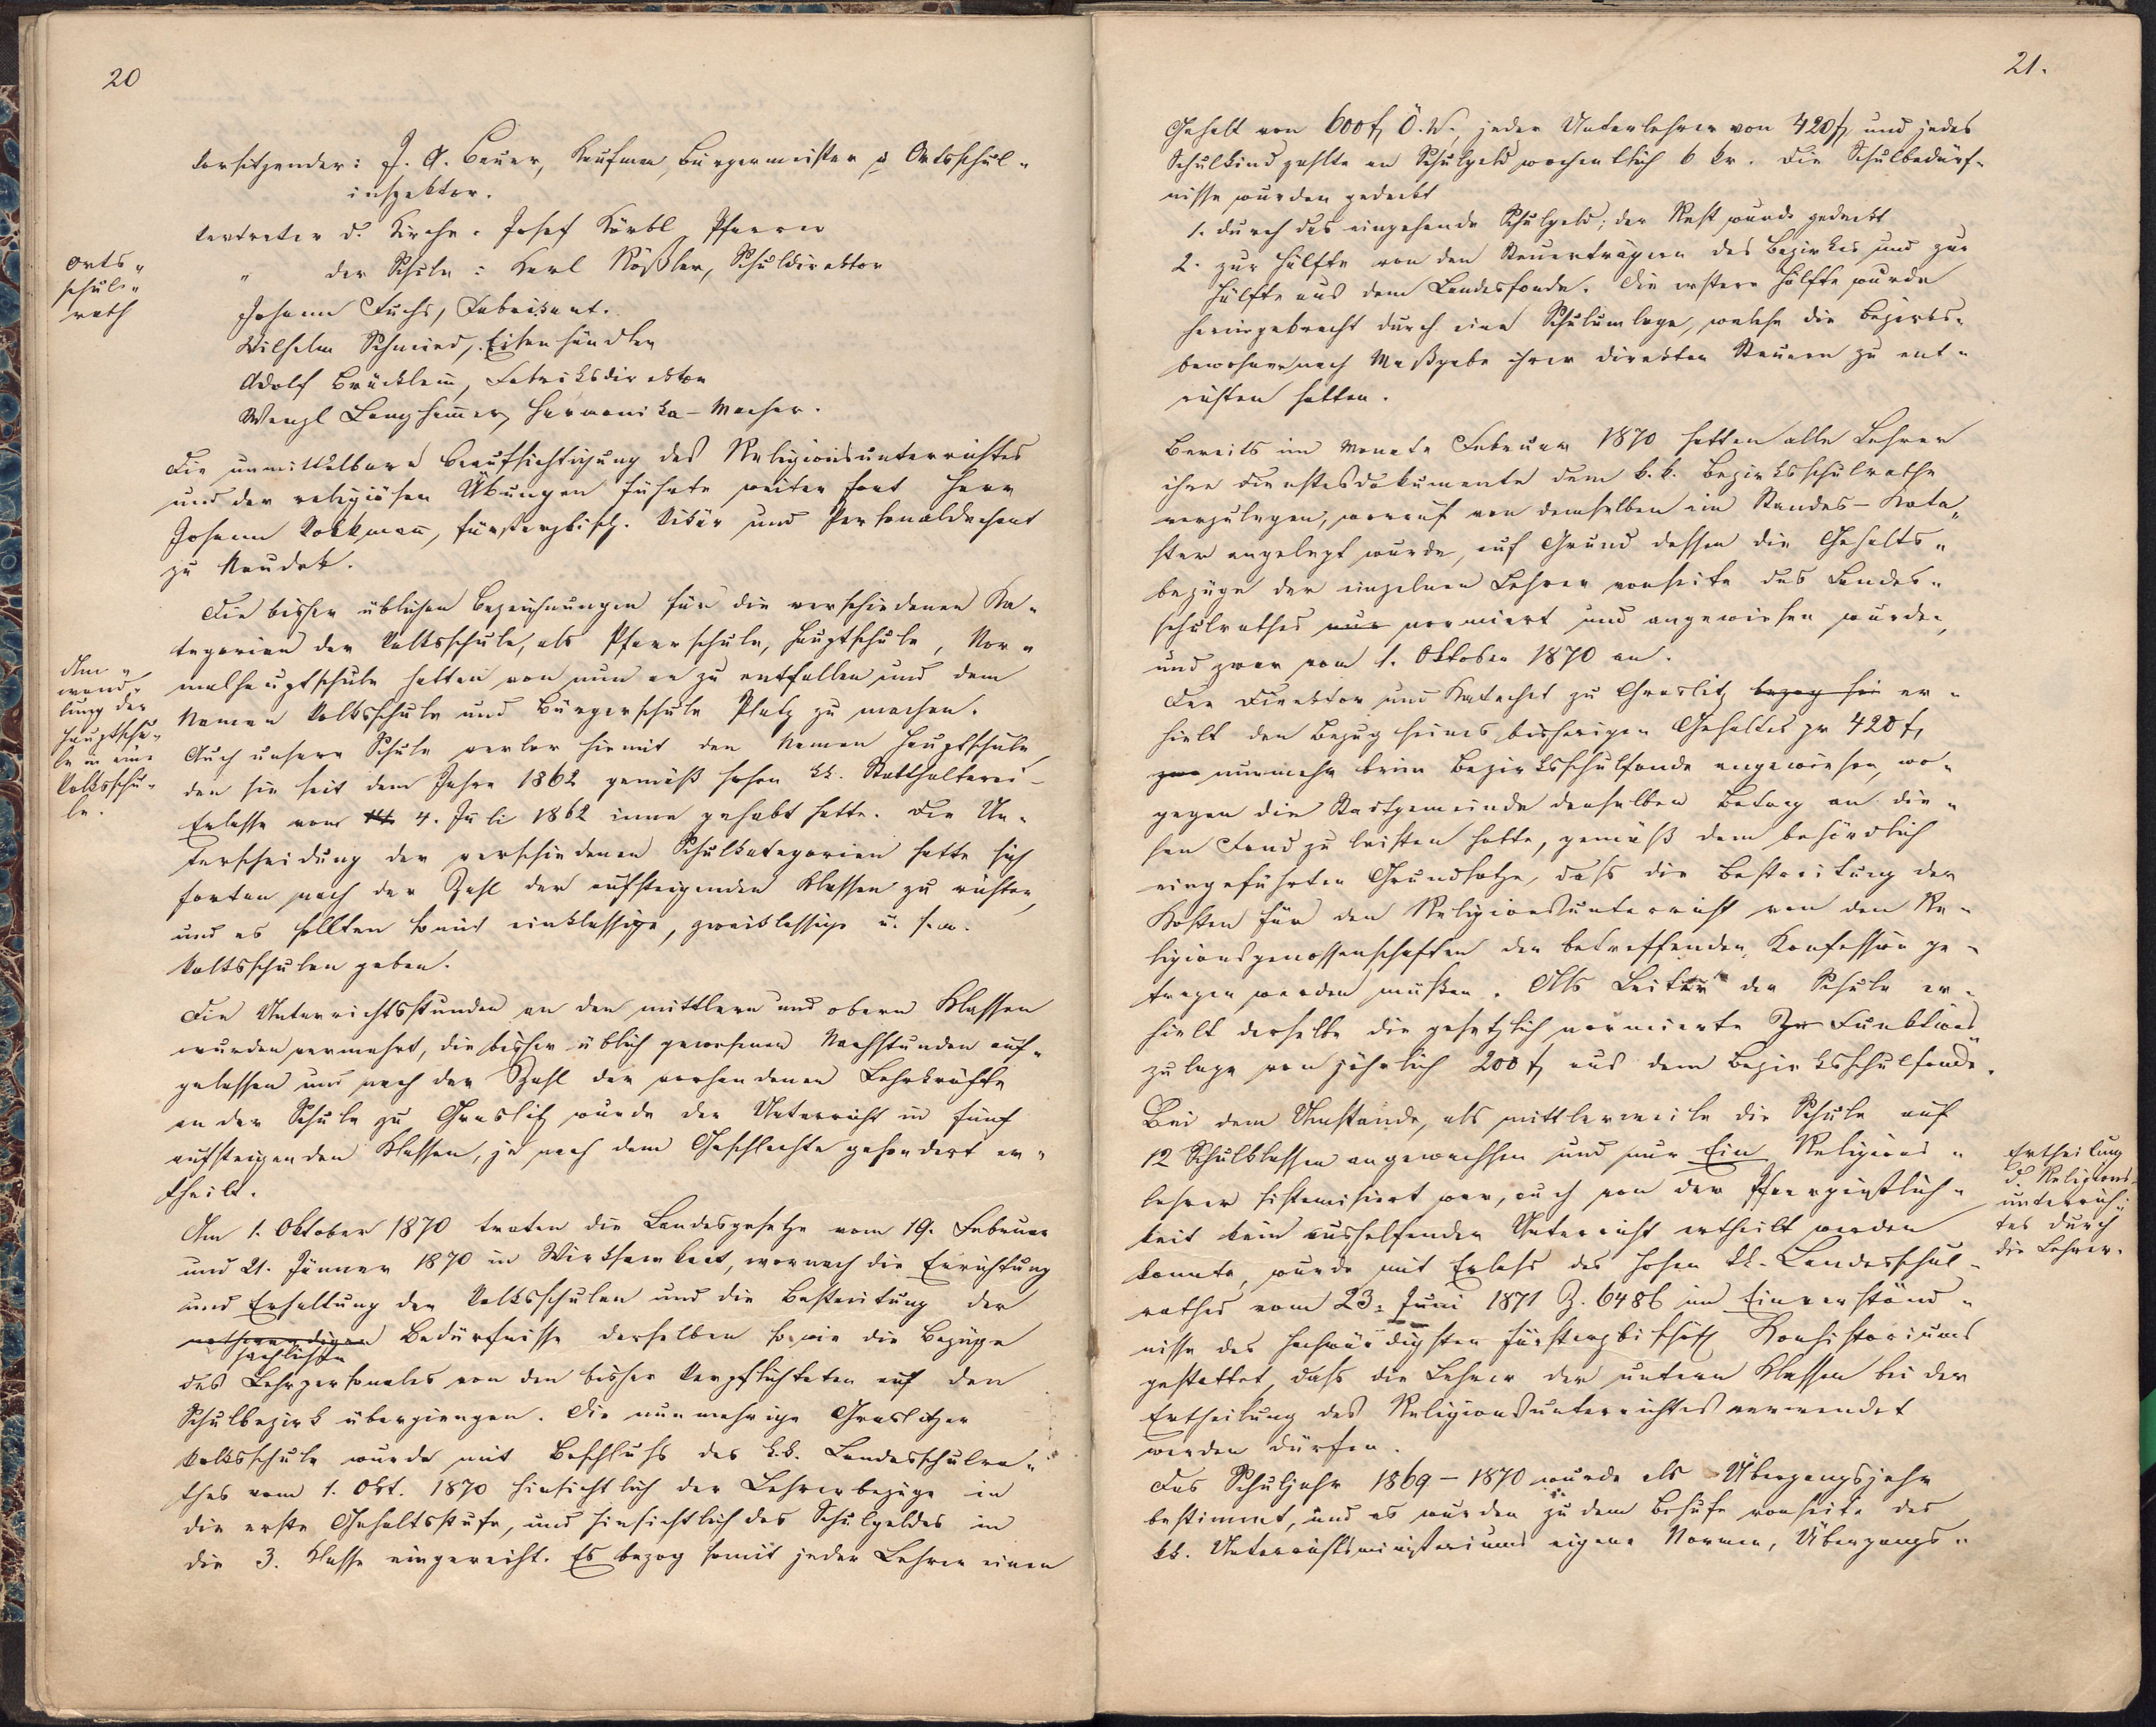 20
Vorsitzender: J. A. Bauer, Kaufman, Bürgermeister u Ortsschul-
inspektor.
Vertreter d. Kirche: Josef Körbl Pfarrer
" der Schule: Karl Rößler, Schuldirektor
Orts-
schul-
rath
Johann Fuchs, Fabrikant.
Wilhelm Schmied, Eisenhändler
Adolf Bräcklein, Fabriksdirektor
Wenzl Langhamer, Harmonika-Macher.
Die unmittelbare Beaufsichtigung des Religionsunterrichtes
und der religiösen Übungen führte weiter fort Herr
Johann Volkmann, fürsterzbisch. Vikär und Personaldechant
zu Neudek.
Die bisher üblichen Bezeichnungen für die verschiedenen Ka-
tegorien der Volksschule, als Pfarrschule, Hauptschule, Nor-
malhauptschule hatten von nun an zu entfallen und dem
Namen Volksschule und Bürgerschule Platz zu machen.
Um-
wand-
lung der
Hauptschu-
le in eine
Volksschu-
le.
Auch unsere Schule verlor hiemit den Namen Hauptschule,
den sie seit dem Jahre 1862 gemäß hohen kk. Statthalterei-
Erlasse vom 4. Juli 1862 inne gehabt hatte. Die Un-
terscheidung der verschiedenen Schulkategorien hatte sich
fortan nach der Zahl der aufsteigenden Klassen zu richten,
und es sollten somit einklassige, zweiklassige u. s. w.
Volksschulen geben.
Die Unterrichtsstunden an den mittlern und obern Klassen
wurden vermehrt, die bisher üblich gewesenen Nachstunden auf-
gelassen und nach der Zahl der vorhandenen Lehrkräfte
an der Schule zu Graslitz wurde der Unterricht in fünf
aufsteigenden Klassen, je nach dem Geschlechte gesondert er-
theilt.
Am 1. Oktober 1870 traten die Landesgesetze vom 19. Februar
und 21. Jänner 1870 in Wirksamkeit, wornach die Errichtung
und Erhaltung der Volksschulen und die Bestreitung der
nothwendigen Bedürfnisse derselben sowie die Bezüge
sachlichen
des Lehrpersonales von den bisher Verpflichteten auf den
Schulbezirk übergiengen. Die nunmehrige Graslitzer
Volksschule wurde mit Beschluß des k.k. Landesschulra-
thes vom 1. Okt. 1870 hinsichtlich der Lehrerbezüge in
die erste Gehaltsstufe, und hinsichtlich des Schulgeldes in
die 3. Klasse eingereiht. Es bezog somit jeder Lehrer einen
21.
Gehalt von 600 f, Ö. W., jeder Unterlehrer von 420 f, und jedes
Schulkind zahlte an Schulgeld wochentlich 6 kr. Die Schulbedürf-
nisse wurden gedeckt
1. durch das eingehende Schulgeld; der Rest wurde gedeckt
2. zur Hälfte von den Steuerträgern des Bezirkes und zur
Hälfte aus dem Landesfonde. Die erstere Hälfte wurde
hereingebracht durch eine Schulumlage, welche die Bezirks-
bewohner nach Maßgabe ihrer direkten Steuern zu ent-
richten hatten.
Bereits im Monate Februar 1870 hatten alle Lehrer
ihre Dienstesdokumente dem k.k. Bezirksschulrathe
vorzulegen, worauf von demselben ein Standes-Kata-
ster angelegt wurde, auf Grund dessen die Gehalts-
bezüge der einzelnen Lehrer vonseite des Landes-
schulrathes nur normiert und angewiesen wurden,
und zwar vom 1. Oktober 1870 an.
Der Direktor und Katechet zu Graslitz bezog sei er-
hielt den Bezug seines bisherigen Gehaltes pr 420 f,
nunmehr beim Bezirksschulfonde angewiesen, wo-
gegen die Stadtgemeinde denselben Betrag an die-
sen Fond zu leisten hatte, gemäß dem behördlich
eingeführten Grundsatze, daß die Bestreitung der
Kosten für den Religionsunterricht von den Re-
ligionsgenossenschaften der betreffenden Konfession ge-
tragen werden müßten. Als Leiter der Schule er-
hielt derselbe die gesetzlich normierte Zu Funktions-
zulage von jährlich 200 f, aus dem Bezirksschulfonde.
Bei dem Umstande, als mittlerweile die Schule auf
12 Schulklassen angewachsen und nur Ein Religions-
lehrer sistemisiert war, auch von der Pfarrgeistlich-
keit kein aushelfender Unterricht ertheilt werden
konnte, wurde mit Erlaß des hohen kk. Landesschul-
rathes vom 23. Juni 1871 Z. 6486 im Einverständ-
nisse des hochwürdigsten fürsterzbischöfl Konsistoriums
gestattet, daß die Lehrer der untern Klassen bei der
Ertheilung des Religionsunterrichtes verwendet
werden dürfen.
Ertheilung
d. Religions-
unterrich-
tes durch
die Lehrer.
Das Schuljahr 1869-1870 wurde als Übergangsjahr
bestimmt, und es wurden zu dem Behufe vonseite des
kk. Unterrichtsministeriums eigene Normen, Übergangs-